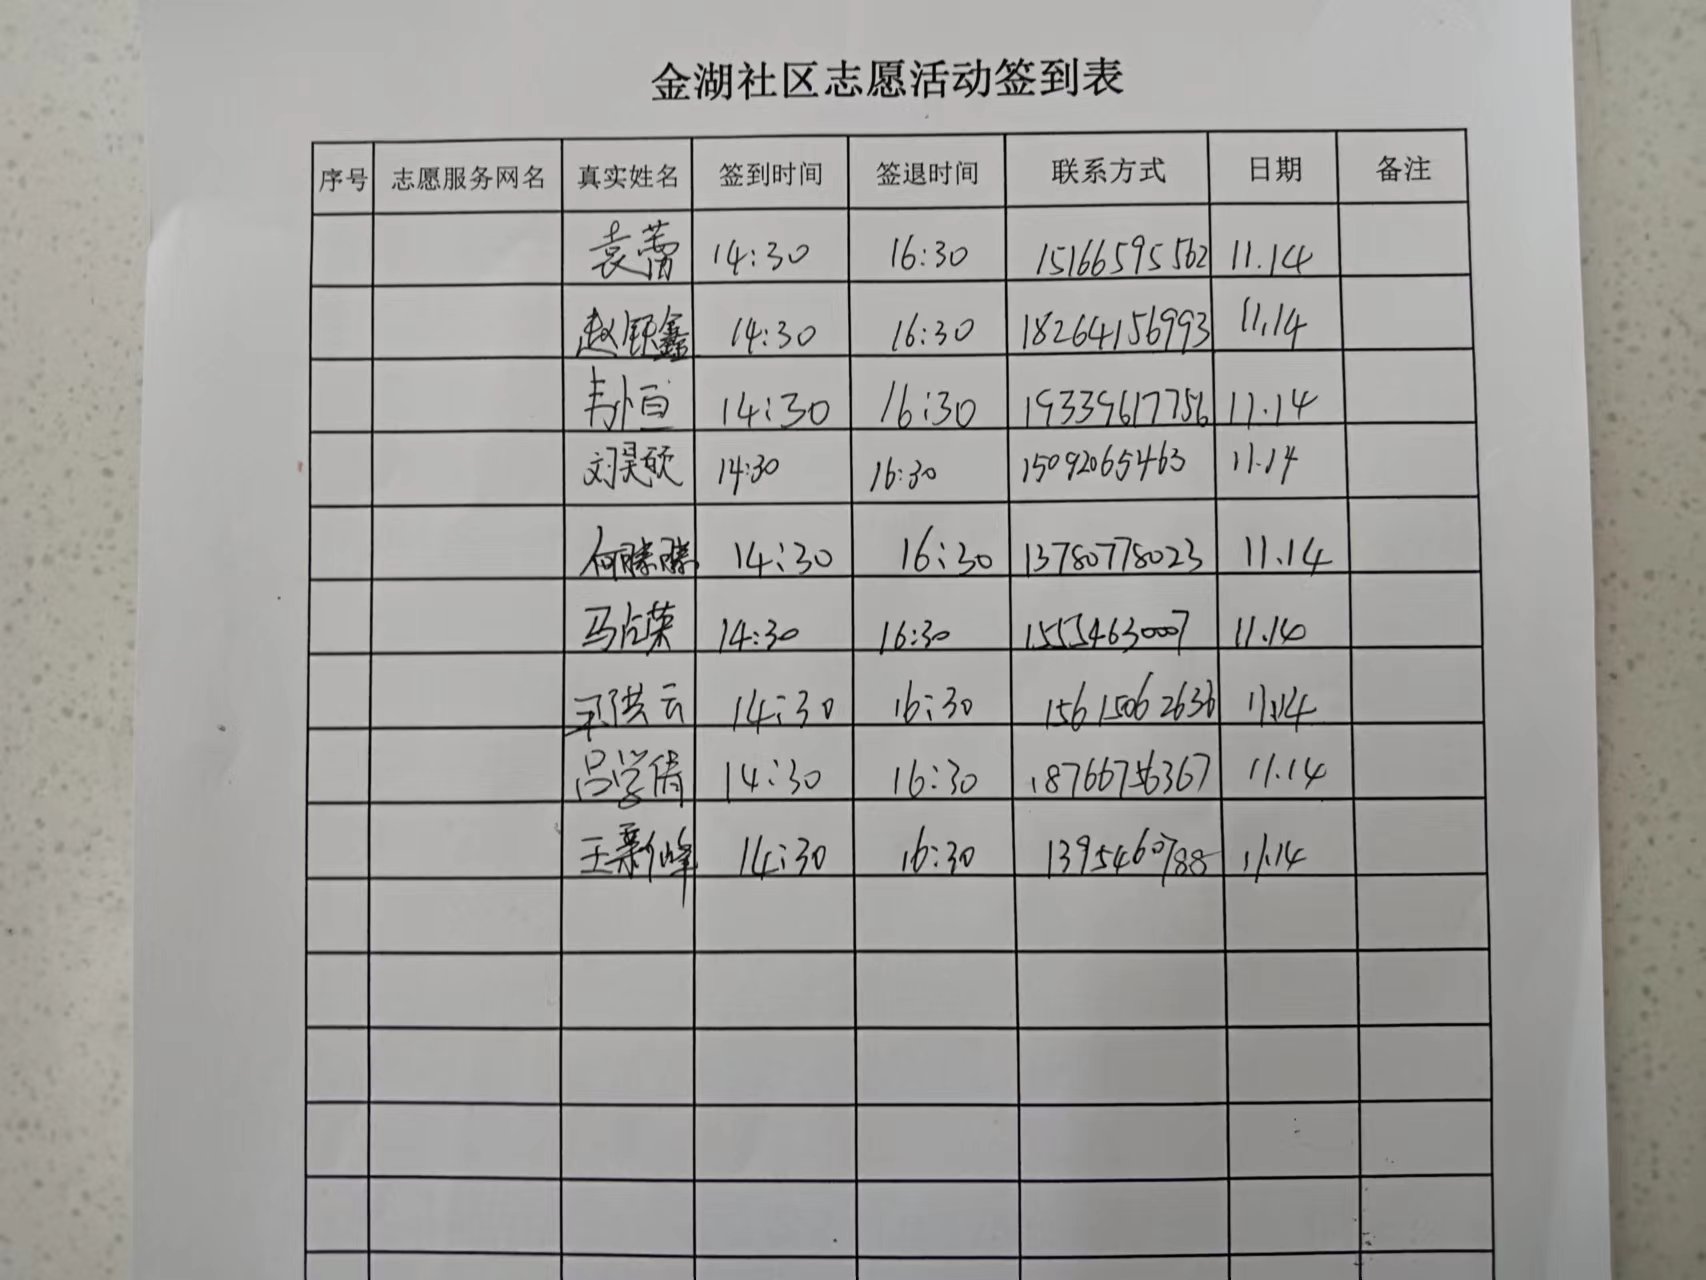 金湖社区志愿活动签到表
序号 志愿服务网名 真实姓名 签到时间 签退时间 联系方式 日期 备注
袁蕾 14:30 16:30 15166595562 11.14
赵钰鑫 14:30 16:30 18264156993 11.14
韦恒 14:30 16:30 19339617756 11.14
刘昊硕 14:30 16:30 15092065463 11.14
何滕滕 14:30 16:30 13780778023 11.14
马占荣 14:30 16:30 15554630007 11.14
洪云 14:30 16:30 15615062636 11.14
吕学倩 14:30 16:30 18766756367 11.14
王新峰 14:30 16:30 13954607885 11.14